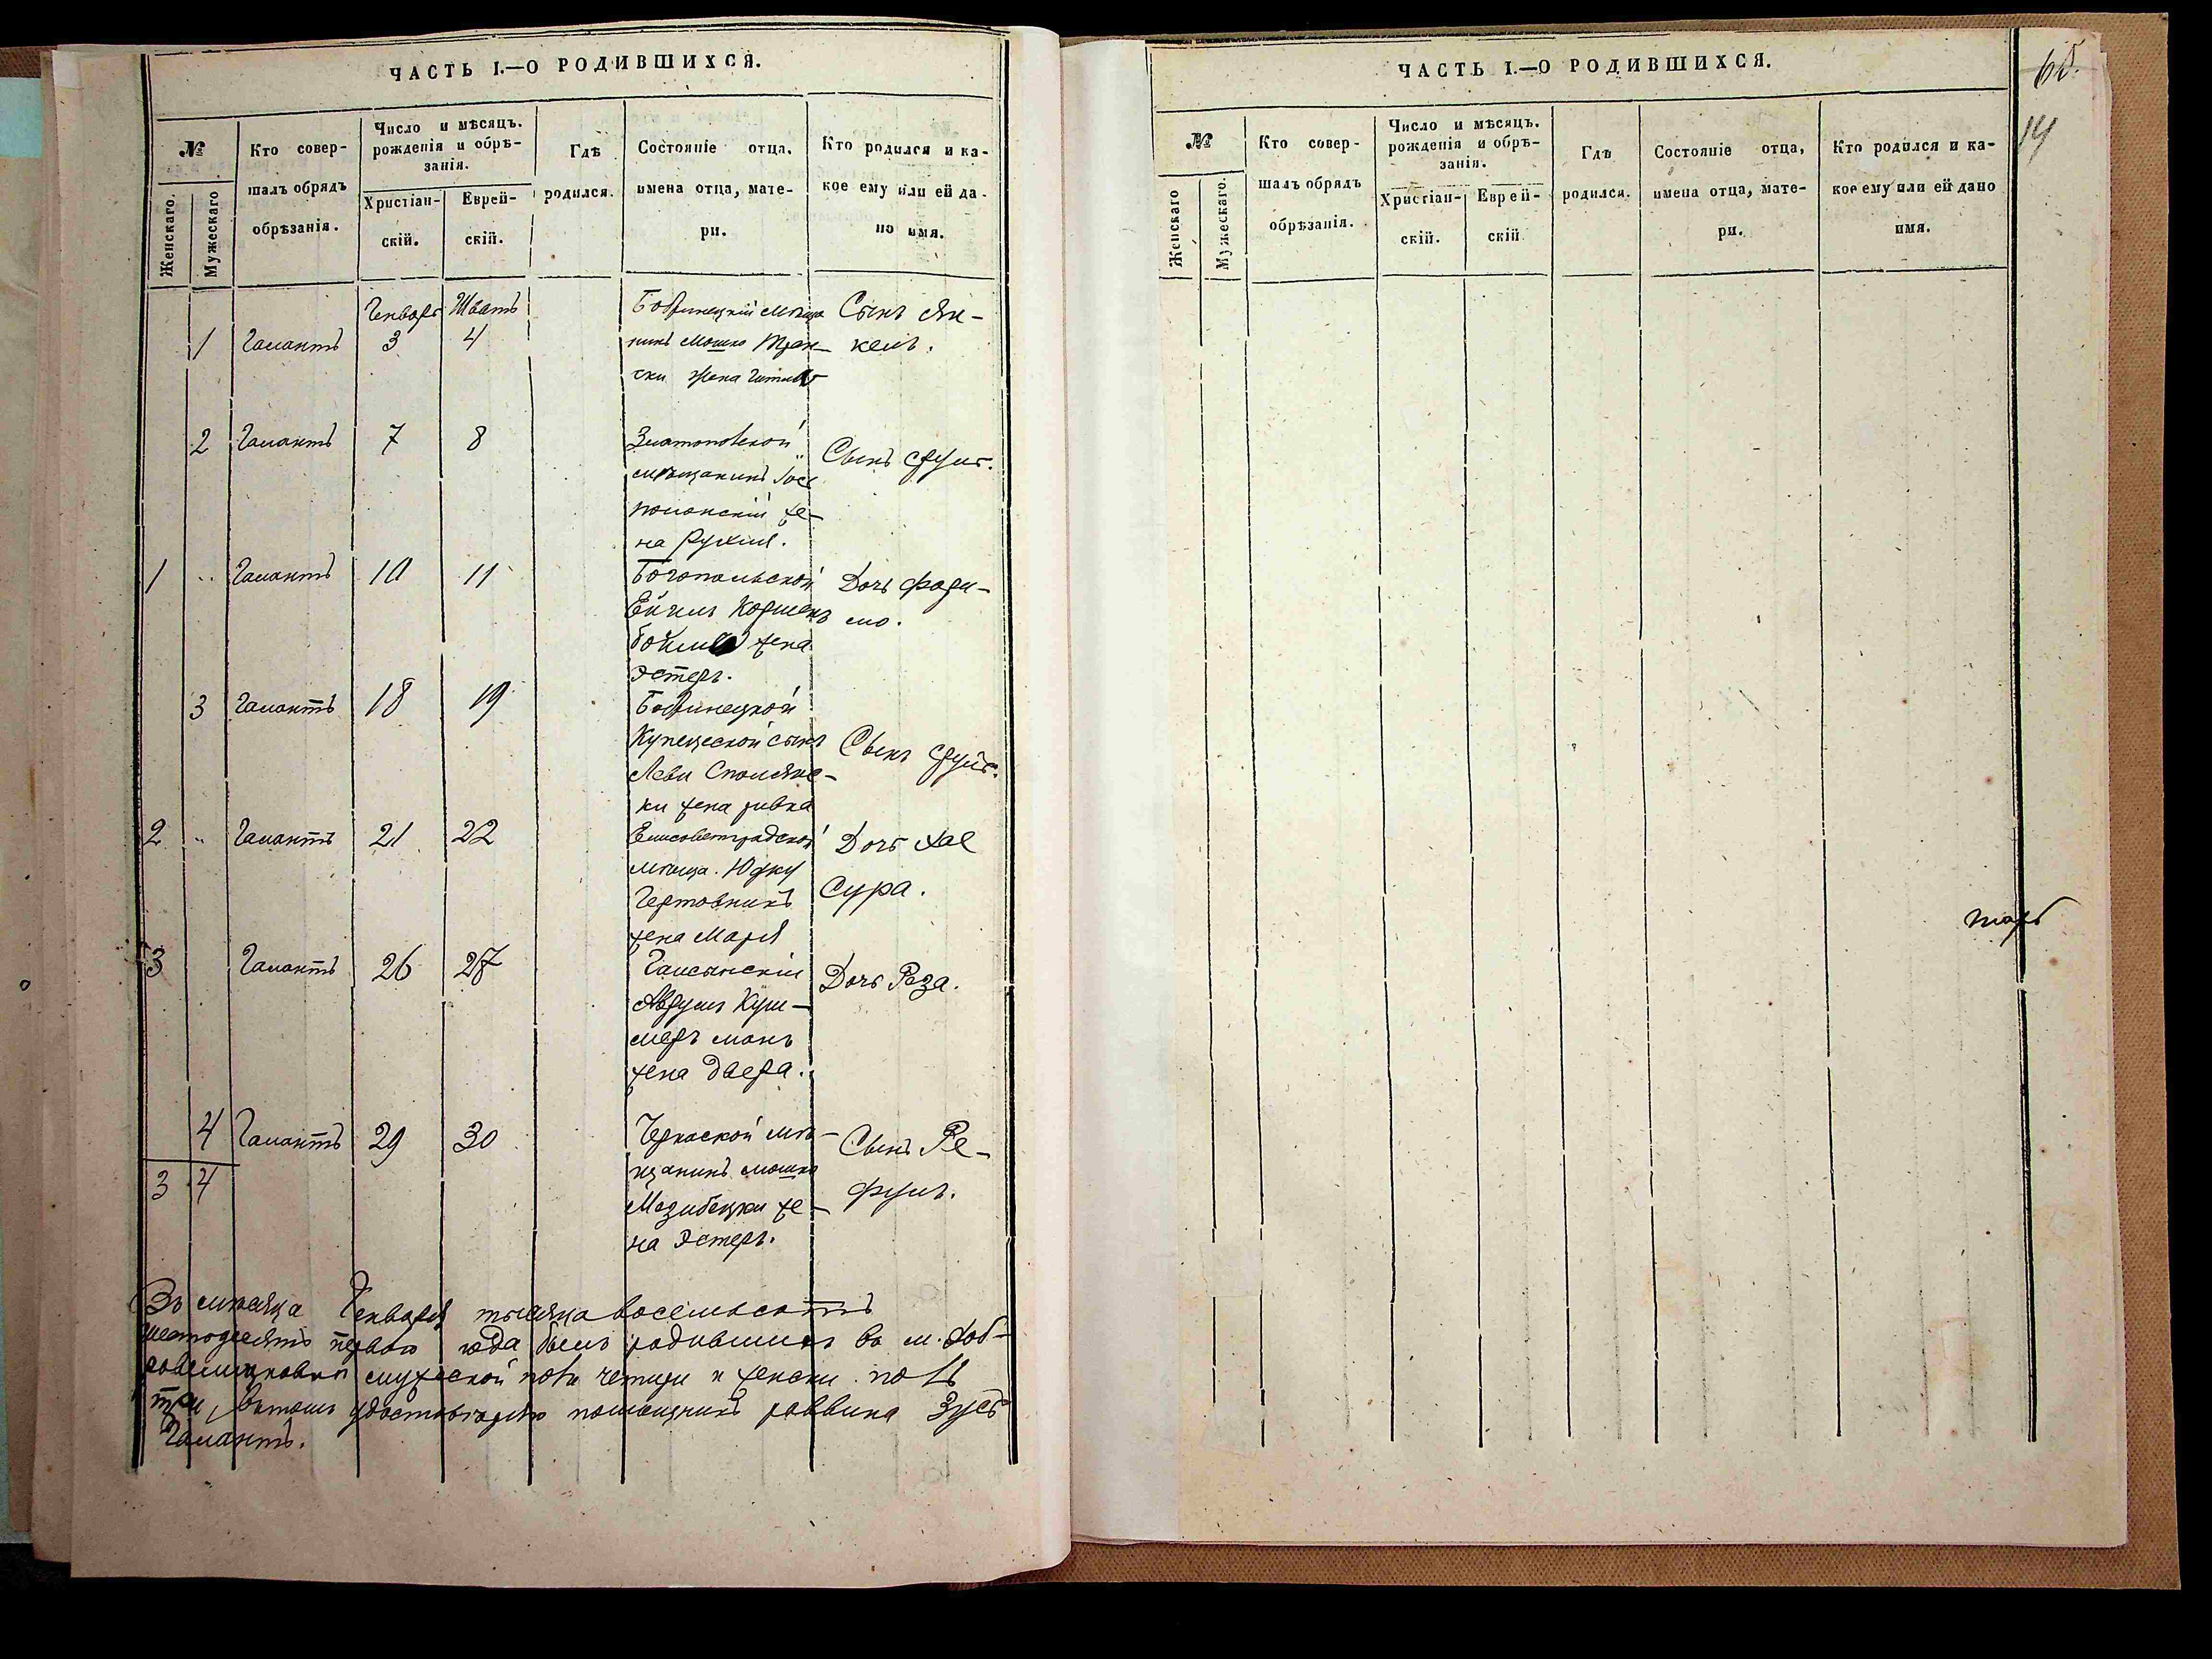 ЧАСТЬ I.—О РОДИВШИХСЯ.
№
Женскаго.
Мужескаго
Кто совер-
шалъ обрядъ
обрѣзанія.
Число и мѣсяцъ.
рожденія и обрѣ-
занія.
Христіан-
скій.
Еврей-
скій.
Гдѣ
родился.
Состояніе отца,
имена отца, мате-
ри.
Кто родился и ка-
кое ему или ей да-
но имя.
Генваръ Шватъ
1 Галантъ 3 4
Бобринецкій мѣща
нинъ Мошко
жена
Сынъ Ян-
кель.
2 Галантъ 7 8
Златопольской
мѣщанинъ Іось
жe-
на Рухля.
Сынъ Сруль.
1 „ Галантъ 10 11
Богопольской
жена
Эстеръ.
Дочь
3 Галантъ 18 19
Бобринецкой
Купеческой сынъ
Леви Сполянс-
ки жена ривка
Сынъ Сруль.
2 „ Галантъ 21 22
Елисоветградской
мѣща. Юдку
Чертовникъ
жена Маря
Дочь Хае
Сура.
3 Галантъ 26 27
Гайсынскій
Аврумъ Куш-
меръ манъ
жена Двера.
Дочь Реза.
4 Галантъ 29 30
Черкаской мѣ-
щанинъ мошко
Мезибецки же-
на Эстеръ.
Сынъ Ре-
фулъ.
3 4
Въ мѣсяца Генваря тысяца восемьсотъ
шестодесятъ первого года было родившихъ въ м.
мужеской полu четири и женски пола
три, въ томъ помощникъ раввина Зусъ
Галантъ.
ЧАСТЬ I.—О РОДИВШИХСЯ.
№
Женскаго
Мужескаго.
Кто совер-
шалъ обрядъ
обрѣзанія.
Число и мѣсяцъ.
рожденія и обрѣ-
занія.
Христіан-
скій.
Еврей-
скій
Гдѣ
родился.
Состояніе отца,
имена отца, мате-
ри.
Кто родился и ка-
кое ему или ей дано
имя.
65.
14